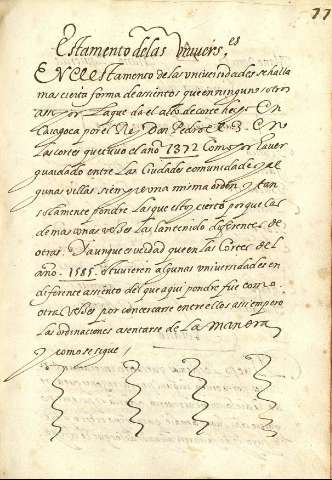 77
Estamento de las Vniuers.es
EN CL estamento de las vniuersidades se halla
mas cierta forma de assientos que en ninguno s otros
assi por la que da el alto de corte hizo en
Caragoça por el Rei Don Pedro el 3 en
las cortes que tuuo el año 1372 Como por auer
guardado entre las Ciudades comunidades y al
gunas villas siempre vna misma orden y tan
solamente pondre la que esto cierto porque las
demas vnas vezes la an tenido diferente de
otras. Y aunque es verdad que en las Cortes del
año. 1585. estuuieron algunas vniuersidades en
diferente assiento del que aqui pondre fue como
otras vezes por concertarse entre ellos assi empero
las ordinaciones asentarse de La manera
y como se sigue